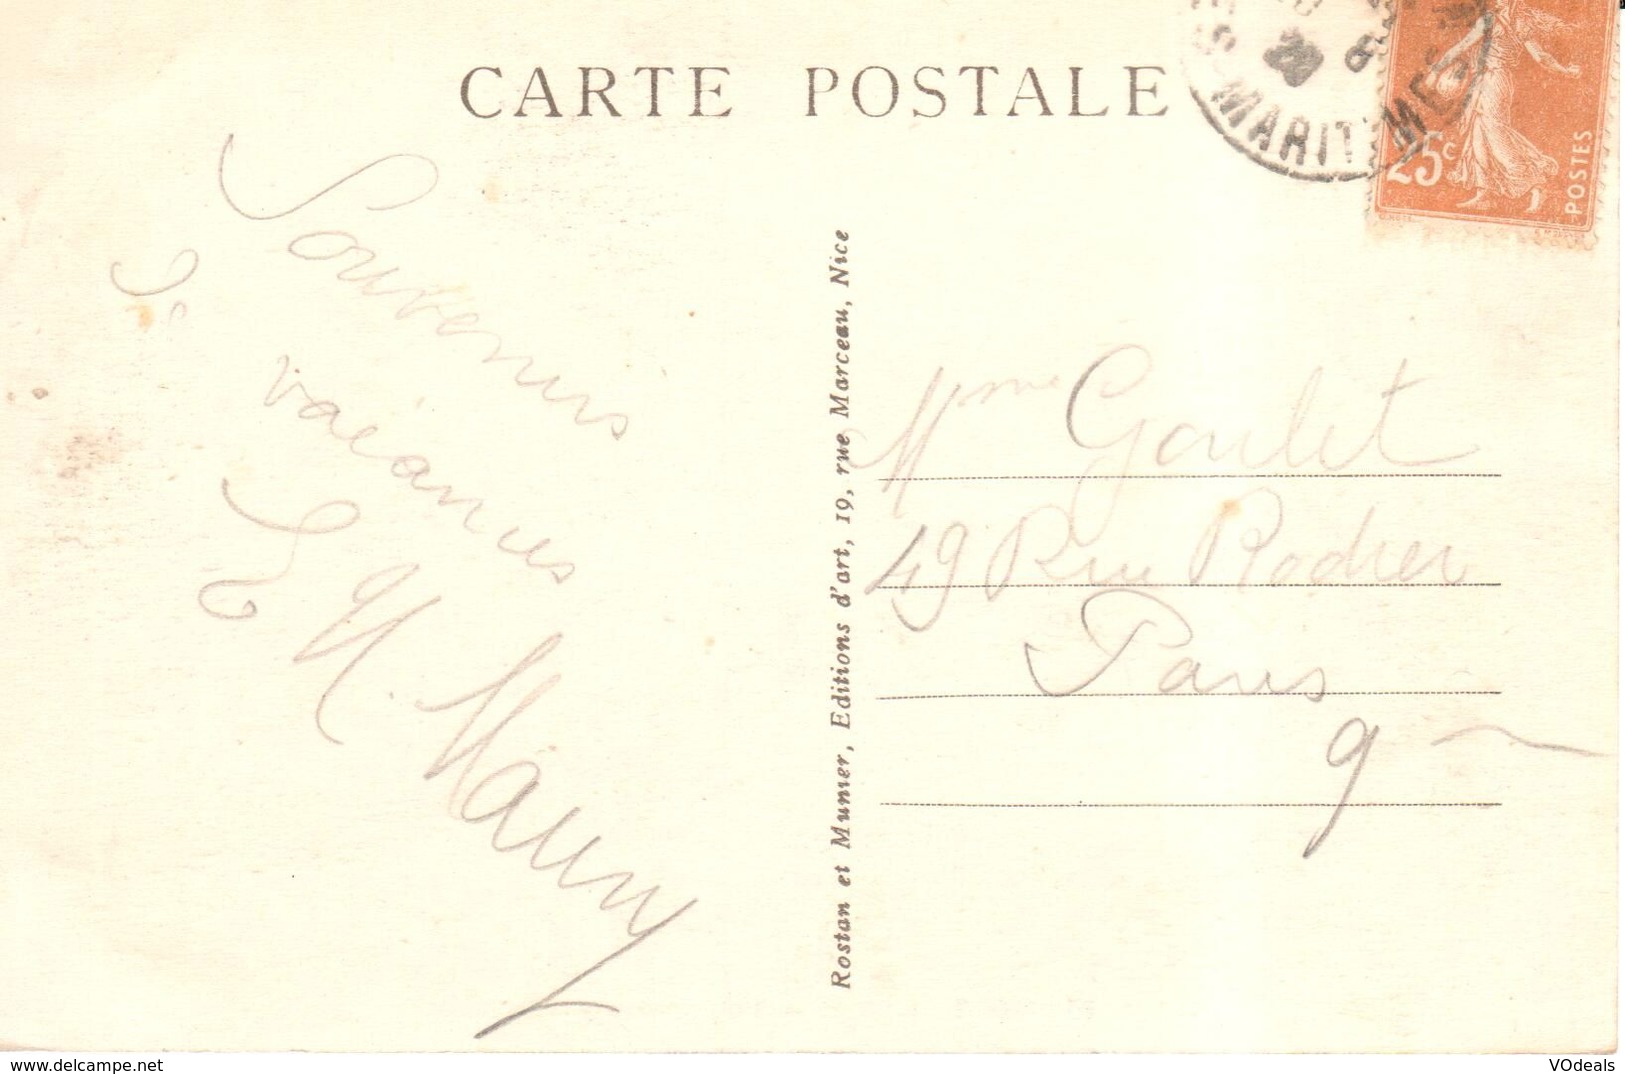 CARTE POSTALE
MARITIMES
25c
POSTES
Souvenirs
de
vacances
E M. Maury
Rostan et Munier, Editions d'art, 19, rue Marceau, Nice
Mme Goulet
49 Rue Rodier
Paris
9
www.delcampe.net
VOdeals